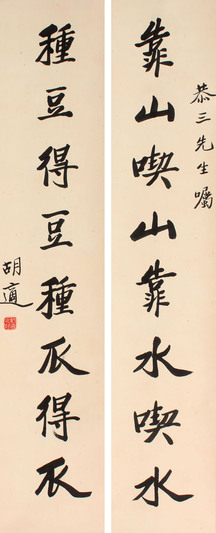 恭三先生嘱
靠山喫山靠水喫水
種豆得豆種瓜得瓜
胡適